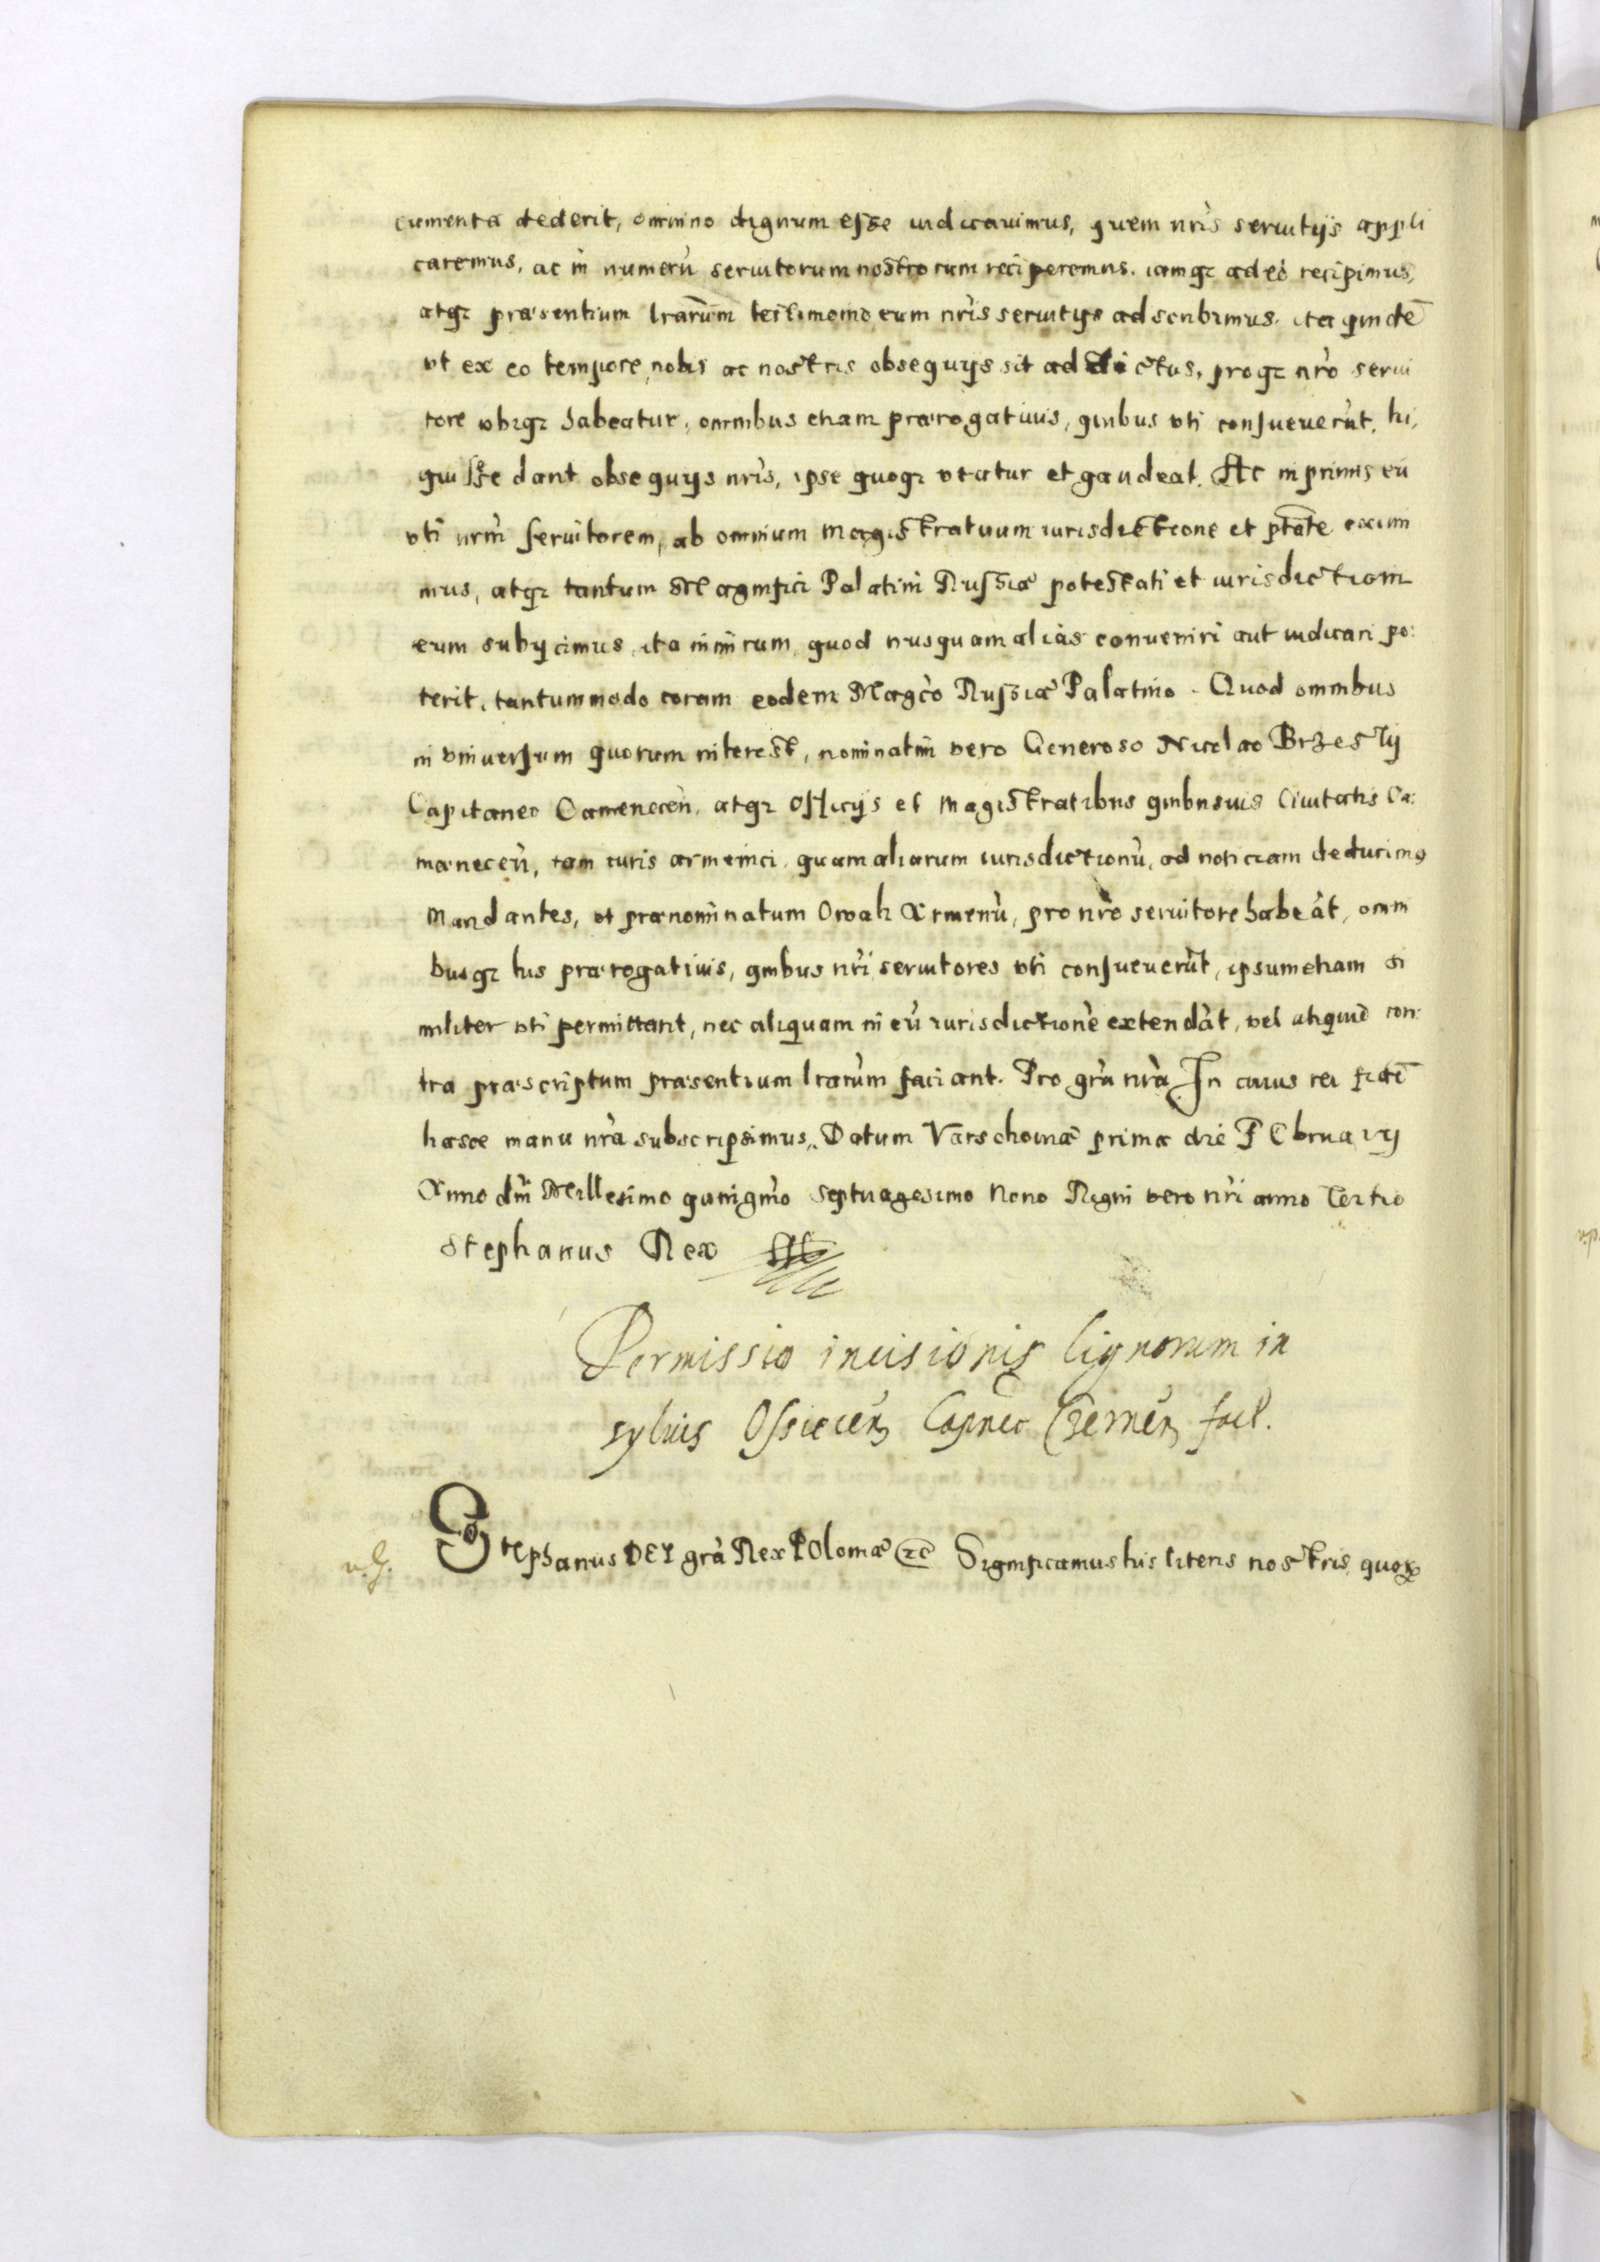 cumenta dederit, omnino dignum esse iudicauimus, quem nris seruitijs appli
caremus, ac in numerũ seruitorum nostrorum reciperemus. iamqz adeò recipimus,
atqz præsentium lrarum testimonio eum nris seruitijs adscribimus. ita quidẽ
vt ex eo tempore nobis ac nostris obsequijs sit addictus, proqz nro serui
tore vbiqz habeatur, omnibus etiam prærogatiuis, quibus vti consueuerũt, hi,
qui se dant obsequijs nris, ipse quoqz vtatur et gaudeat. Ac in primis eũ
vti nrm seruitorem, ab omnium magistratuum iurisdictione et ptate eximi
mus, atqz tantum Magnifici Palatini Russiæ potestati et iurisdictioni
eum subijcimus, ita nimirum, quod nusquam aliàs conueniri aut iudicari po:
terit, tantummodo coram eodem Magco Russiæ Palatino. Quod omnibus
in vniuersum quorum interest, nominatim vero Generoso Nicolao Brzesky
Capitaneo Camenecen̄, atqz officijs et magistratibus quibusuis Ciuitatis Ca:
mænecen̄, tam iuris armenici quam aliarum iurisdictionũ, ad noticiam deducimus
Mandantes, vt prænominatum Owak Armenũ, pro nro seruitore habeãt, omni
busqz his prærogatiuis, quibus nri seruitores vti consueuerũt, ipsum etiam si
militer vti permittant, nec aliquam in eũ iurisdictionẽ extendãt, vel aliquid con:
tra præscriptum præsentium lrarũm faciant. Pro gra nra In cuius rei fidẽ
hasce manu nra subscripsimus. Datum Varschouiæ prima die FEbruarij
Anno dni Millesimo quingmo Septuagesimo Nono Regni vero nri anno Tertio
Stephanus Rex
Permissio incisionis lignorum in
syluis Ossiecen̄ Capneo Czernen̄ fact.
Stephanus DEI gra Rex POloniæ etc̄ Significamus his literis nostris quorꝫ